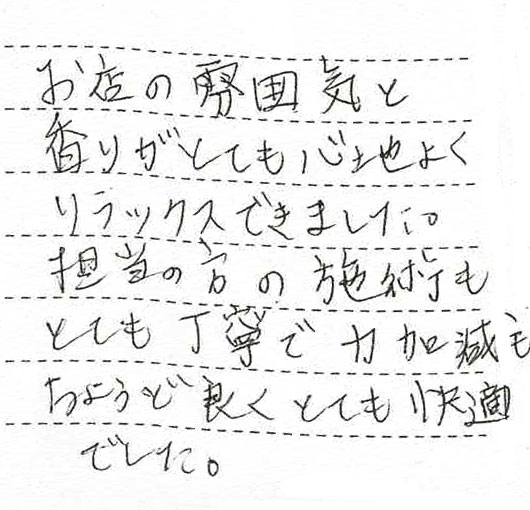 お店の雰囲気と
香りがとても心地よく
リラックスできました。
担当の方の施術も
とても丁寧で力加減も
ちょうど良くとても快適
でした。